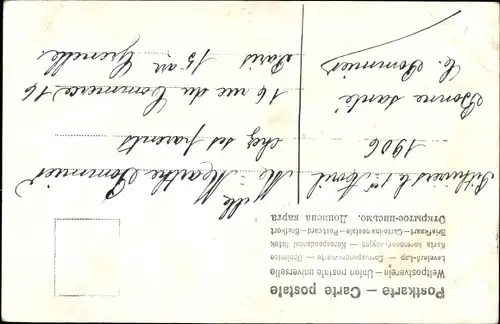 Postkarte — Carte postale
Weltpostverein — Union postale universelle
Levelező-Lap — Correspondenzkarte — Dopisnice
Karta korespondencyjna — Korespondenční lístek
Briefkaart — Cartolina postale — Post card — Brefkort
Открытое письмо. Дописна карта
Pithiviers le 1er Avril
1906
Bonne santé
E. Pommier
Mlle Marthe Pommier
chez ses parents
16 rue du Commerce 16
Paris 15 arr Grenelle